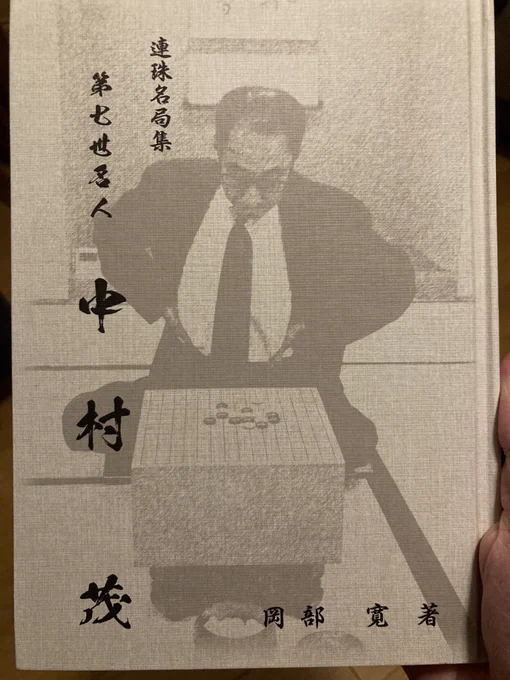 連珠名局集
第七世名人
中村茂
岡部 寛 著